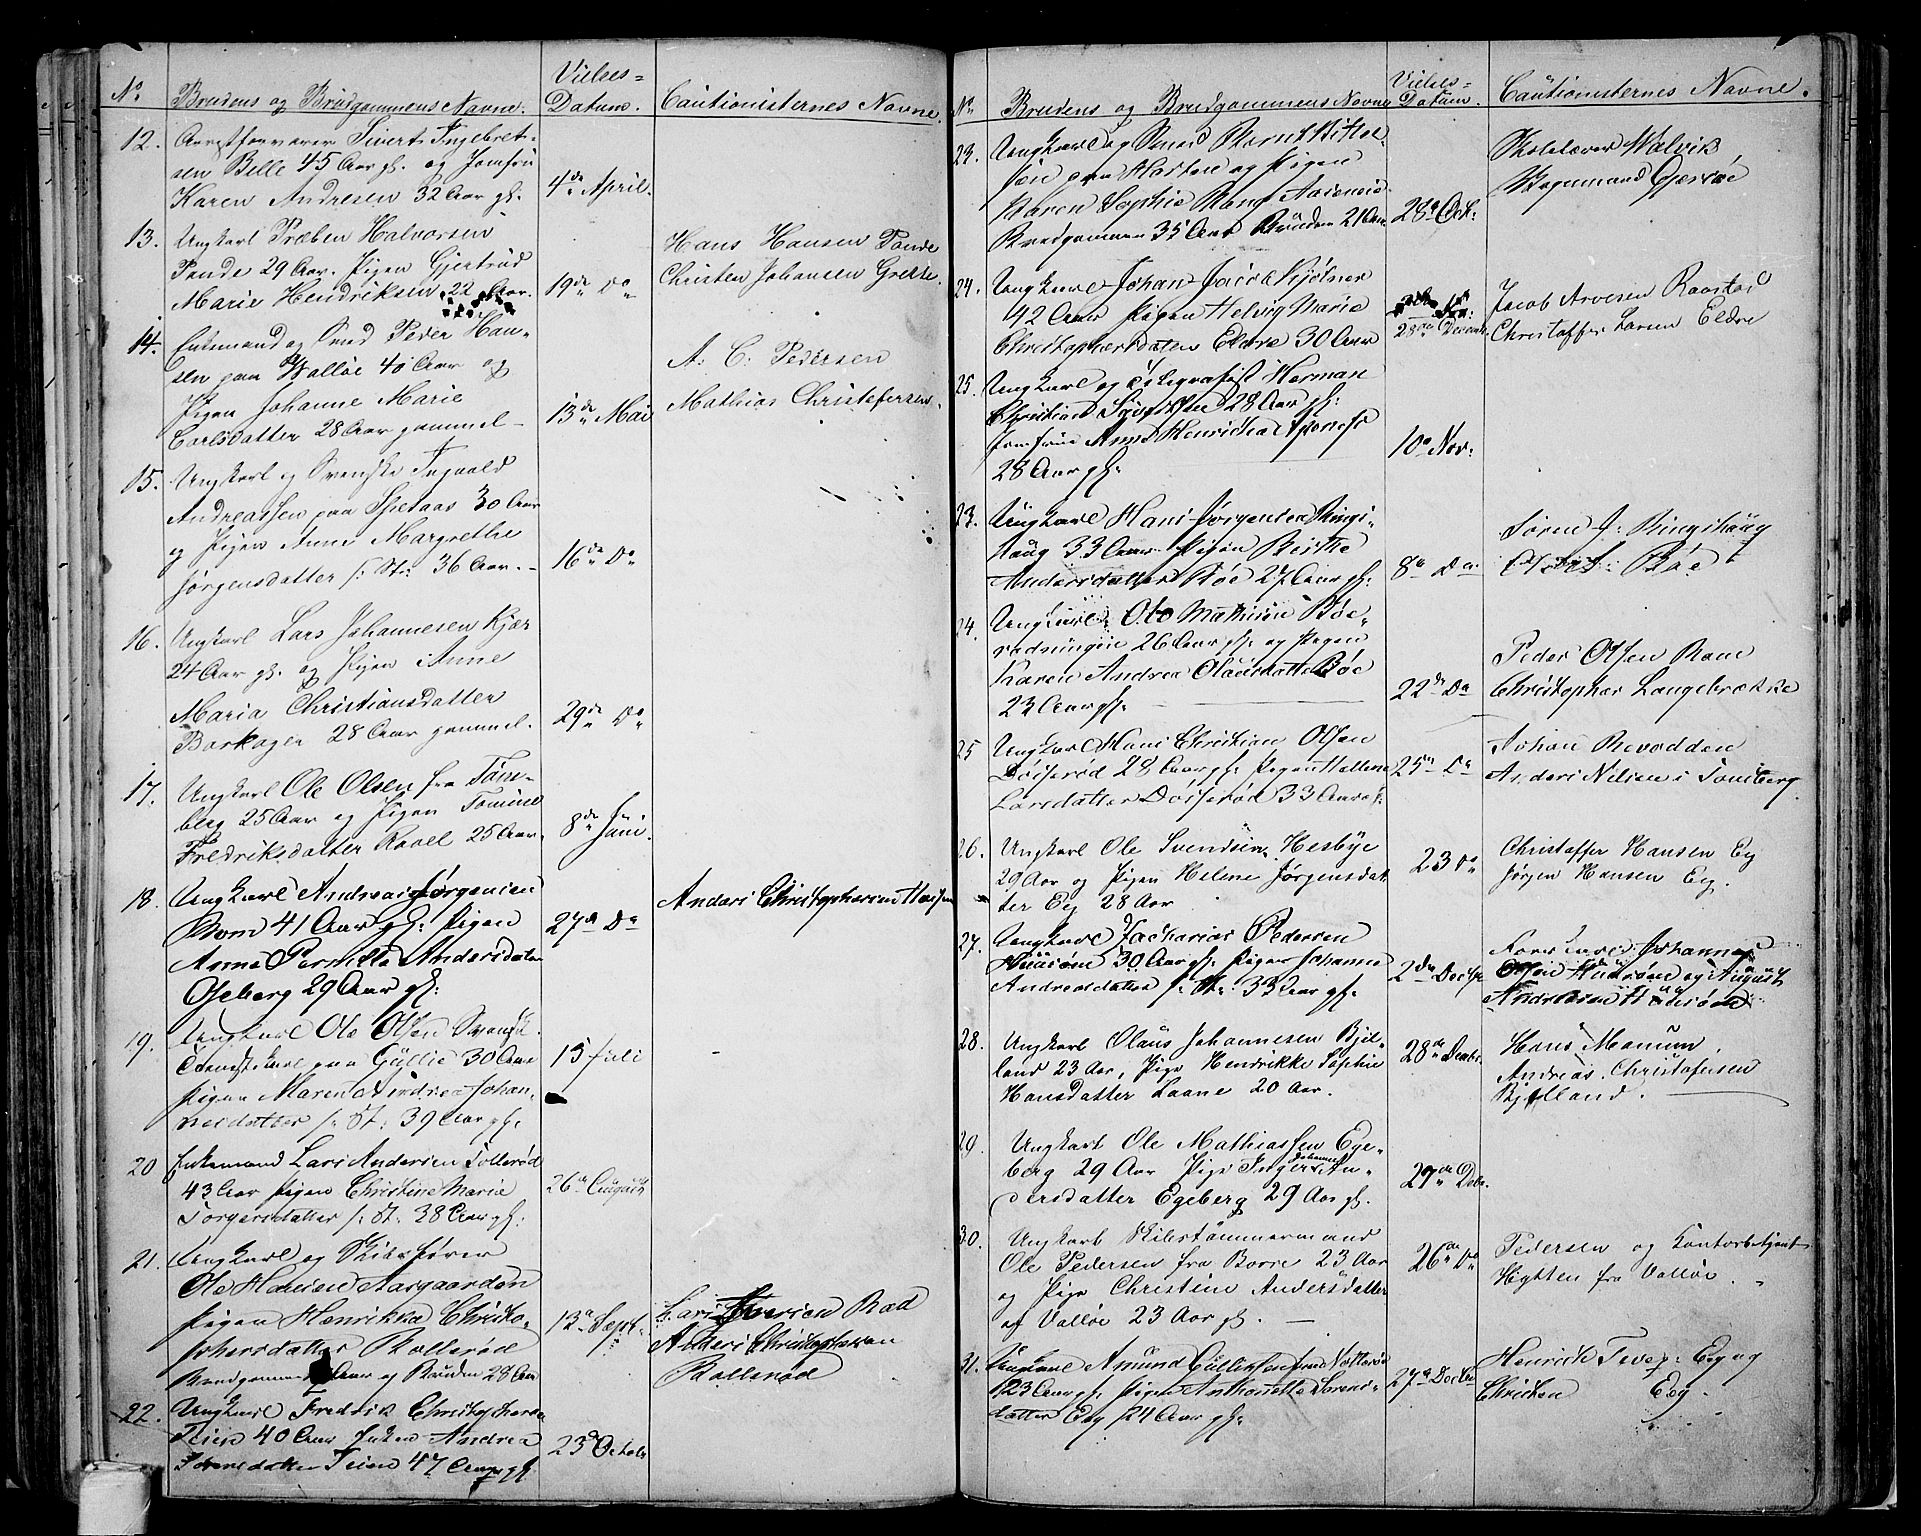 No
Brudens og Brudgommens Navne.
Vielses=
Datum.
Cautionisternes Navne.
12.
Arrestforvarer Sivert Ingebret-
sen Belle 45 Aar gl. og Jomfru
Karen Andresen 32 Aar gl.
4de April.
13.
Ungkarl Præben Halvorsen
Pande 29 Aar. Pigen Gjertrud
Marie Hendriksen 22 Aar.
19de Do
Hans Hansen Pande
Christen Johansen Grette.
14.
Enkemand og Smed Peder Han-
sen paa Walløe 40 Aar og
Pigen Johanne Marie
Carlsdatter 28 Aar gammel
13de Mai
A. C. Pedersen
Mathias Christofersen.
15.
Ungkarl og Svenske Ingvald
Andreassen paa 30 Aar
og Pigen Anne Margrethe
Jørgensdatter s: St: 36 Aar.
16de Do
16.
Ungkarl Lars Johannesen Kjær
24 Aar gl. og Pigen Anne
Maria Christiansdatter
Barkager 28 Aar gammel.
29de Do
17.
Ungkarl Ole Olsen fra Tøns-
berg 25 Aar og Pigen Tomine
Fredriksdatter Ravel 25 Aar.
8de Juni.
18.
Ungkarl Andreas Jørgensen
Rom 41 Aar gl: Pigen
Anne Pernille Andersdatter
Oseberg 29 Aar gl:
27de Do
Anders Christophersen
19.
Ungkarl Ole Olsen Svensk
Tjenestekarl paa Gullie 30 Aar
Pigen Maren Andrea Johan-
nesdatter s: St: 39 Aar gl.
15 Juli
20
Enkemand Lars Andersen Tollerød
43 Aar Pigen Christine Maria
Torgersdatter s: St: 38 Aar gl:
26de August
21.
Ungkarl og Skibsfører
Ole Hansen Aargaarden
Pigen Henrikka Christo-
phersdatter Rollerød
Brudgommen Aar og Bruden 28 Aar
13de Sept.
Lars Iversen Rad
Anders Christophersen
Rollerød
22.
Ungkarl Fredrik Christophersen
Teien 40 Aar Enken Andrea
Teien 47 Aar gl.
23de Octob
No
Brudens og Brudgommens Navne
Vielses=
Datum.
Cautionisternes Navne.
23.
Ungkarl og Smed Bernt
paa og Pigen
Karen Sophie
Brudgommen 35 Aar Bruden 21 Aar
28de Oct:
Skolelærer Walvik
Bogemand
24.
Ungkarl Johan Jacob Kjølner
42 Aar Pigen Helvig Marie
Christophersdatter Eldre 30 Aar
28de Decemb
Jacob Arvesen Raastad
Christoffer Larsen Eldre
25.
Ungkarl og Telegrafist Herman
Christian 28 Aar gl:
Jomfrue Anna Henricha
28 Aar gl:
10de Nov:
23.
Ungkarl Hans Jørgensen Rings-
haug 33 Aar Pigen Berthe
Andersdatter Bøe 27 Aar gl:
8de Do
Søren J: Ringshaug
Bøe
24.
Ungkarl Ole Mathisen Bøe
26 Aar gl: og Pigen
Karen Andrea Olausdatter Bøe
23 Aar gl.
22de Do
Peder Olsen Rom
Christopher Langebrække
25
Ungkarl Hans Christian Olsen
Døiserød 28 Aar gl: Pigen Hellene
Larsdatter Døiserød 33 Aar gl:
25de Do
Johan Revodden
Anders Nilsen i Tønsberg.
26.
Ungkarl Ole Svendsen Hesbye
29 Aar og Pigen Helene Jørgensdat-
ter Eeg 28 Aar
23 Do
Christoffer Hansen Eeg
Jørgen Hansen Eeg.
27.
Ungkarl Zacharias Pedersen
Husøen 30 Aar gl: Pigen Johanne
Andreadatter s: St: 33 Aar gl.
2de Decbr
Johannes
Olsen Husøen og August
Andersen Husøen
28.
Ungkarl Olaus Johannesen Bjel-
land 23 Aar, Pige Hendrikke Sophie
Hansdatter Laane 20 Aar.
28de Decbr.
Hans Manum,
Andreas Christofersen
Bjelland.
29.
Ungkarl Ole Mathiassen Ege-
berg 29 Aar Pige Inger Johanne An-
dersdatter Egeberg 29 Aar gl.
27de Decbr.
30.
Ungkarl Skibstømmermand
Ole Pedersen fra Borre 23 Aar
og Pige Christine Andersdatter
af Valløe 23 Aar gl.
26de Do
Pedersen og Kontorbetjent
Hytten fra Valløe.
31.
Ungkarl Amund Gulliksen fra Nøtterø
23 Aar gl: Pigen Anthonette Sørens-
datter Eeg 24 Aar gl:
27de Decbr
Henrick Eeg og
Christen Eeg.